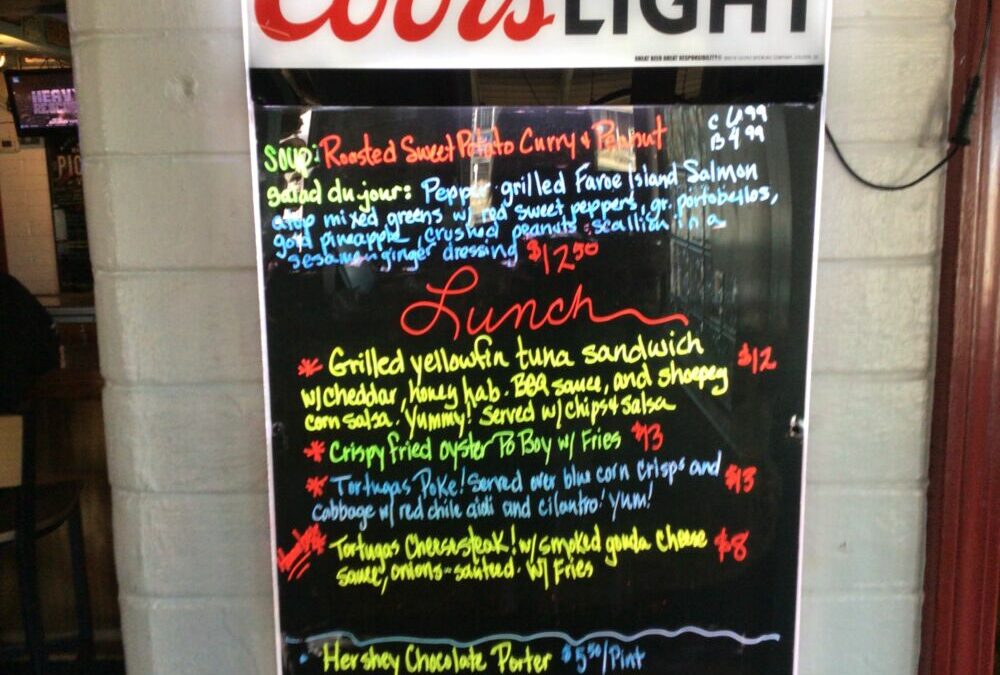 Coors LIGHT
GREAT BEER GREAT RESPONSIBILITY
HEAVY
C 6.99
Soup: Roasted Sweet Potato Curry & Peanut
B 4.99
Salad du jour: Pepper grilled Faroe Island Salmon
atop mixed greens w/ red sweet peppers, gr. portobellos,
gold pineapple, crushed peanuts scallion in a
sesame ginger dressing $12.50
Lunch
* Grilled yellowfin tuna sandwich $12
w/cheddar, honey hab. BBQ sauce, and shoepeg
corn salsa. Yummy! Served w/chips & Salsa
* Crispy fried oyster Po Boy w/ Fries $13
* Tortugas Poke! Served over blue corn crisps and $13
cabbage w/ red chile aioli and cilantro! Yum!
Tortugas Cheesesteak! w/smoked gouda cheese $8
sauce, onions-sauteed. w/ Fries
Hershey Chocolate Porter $5.50/Pint